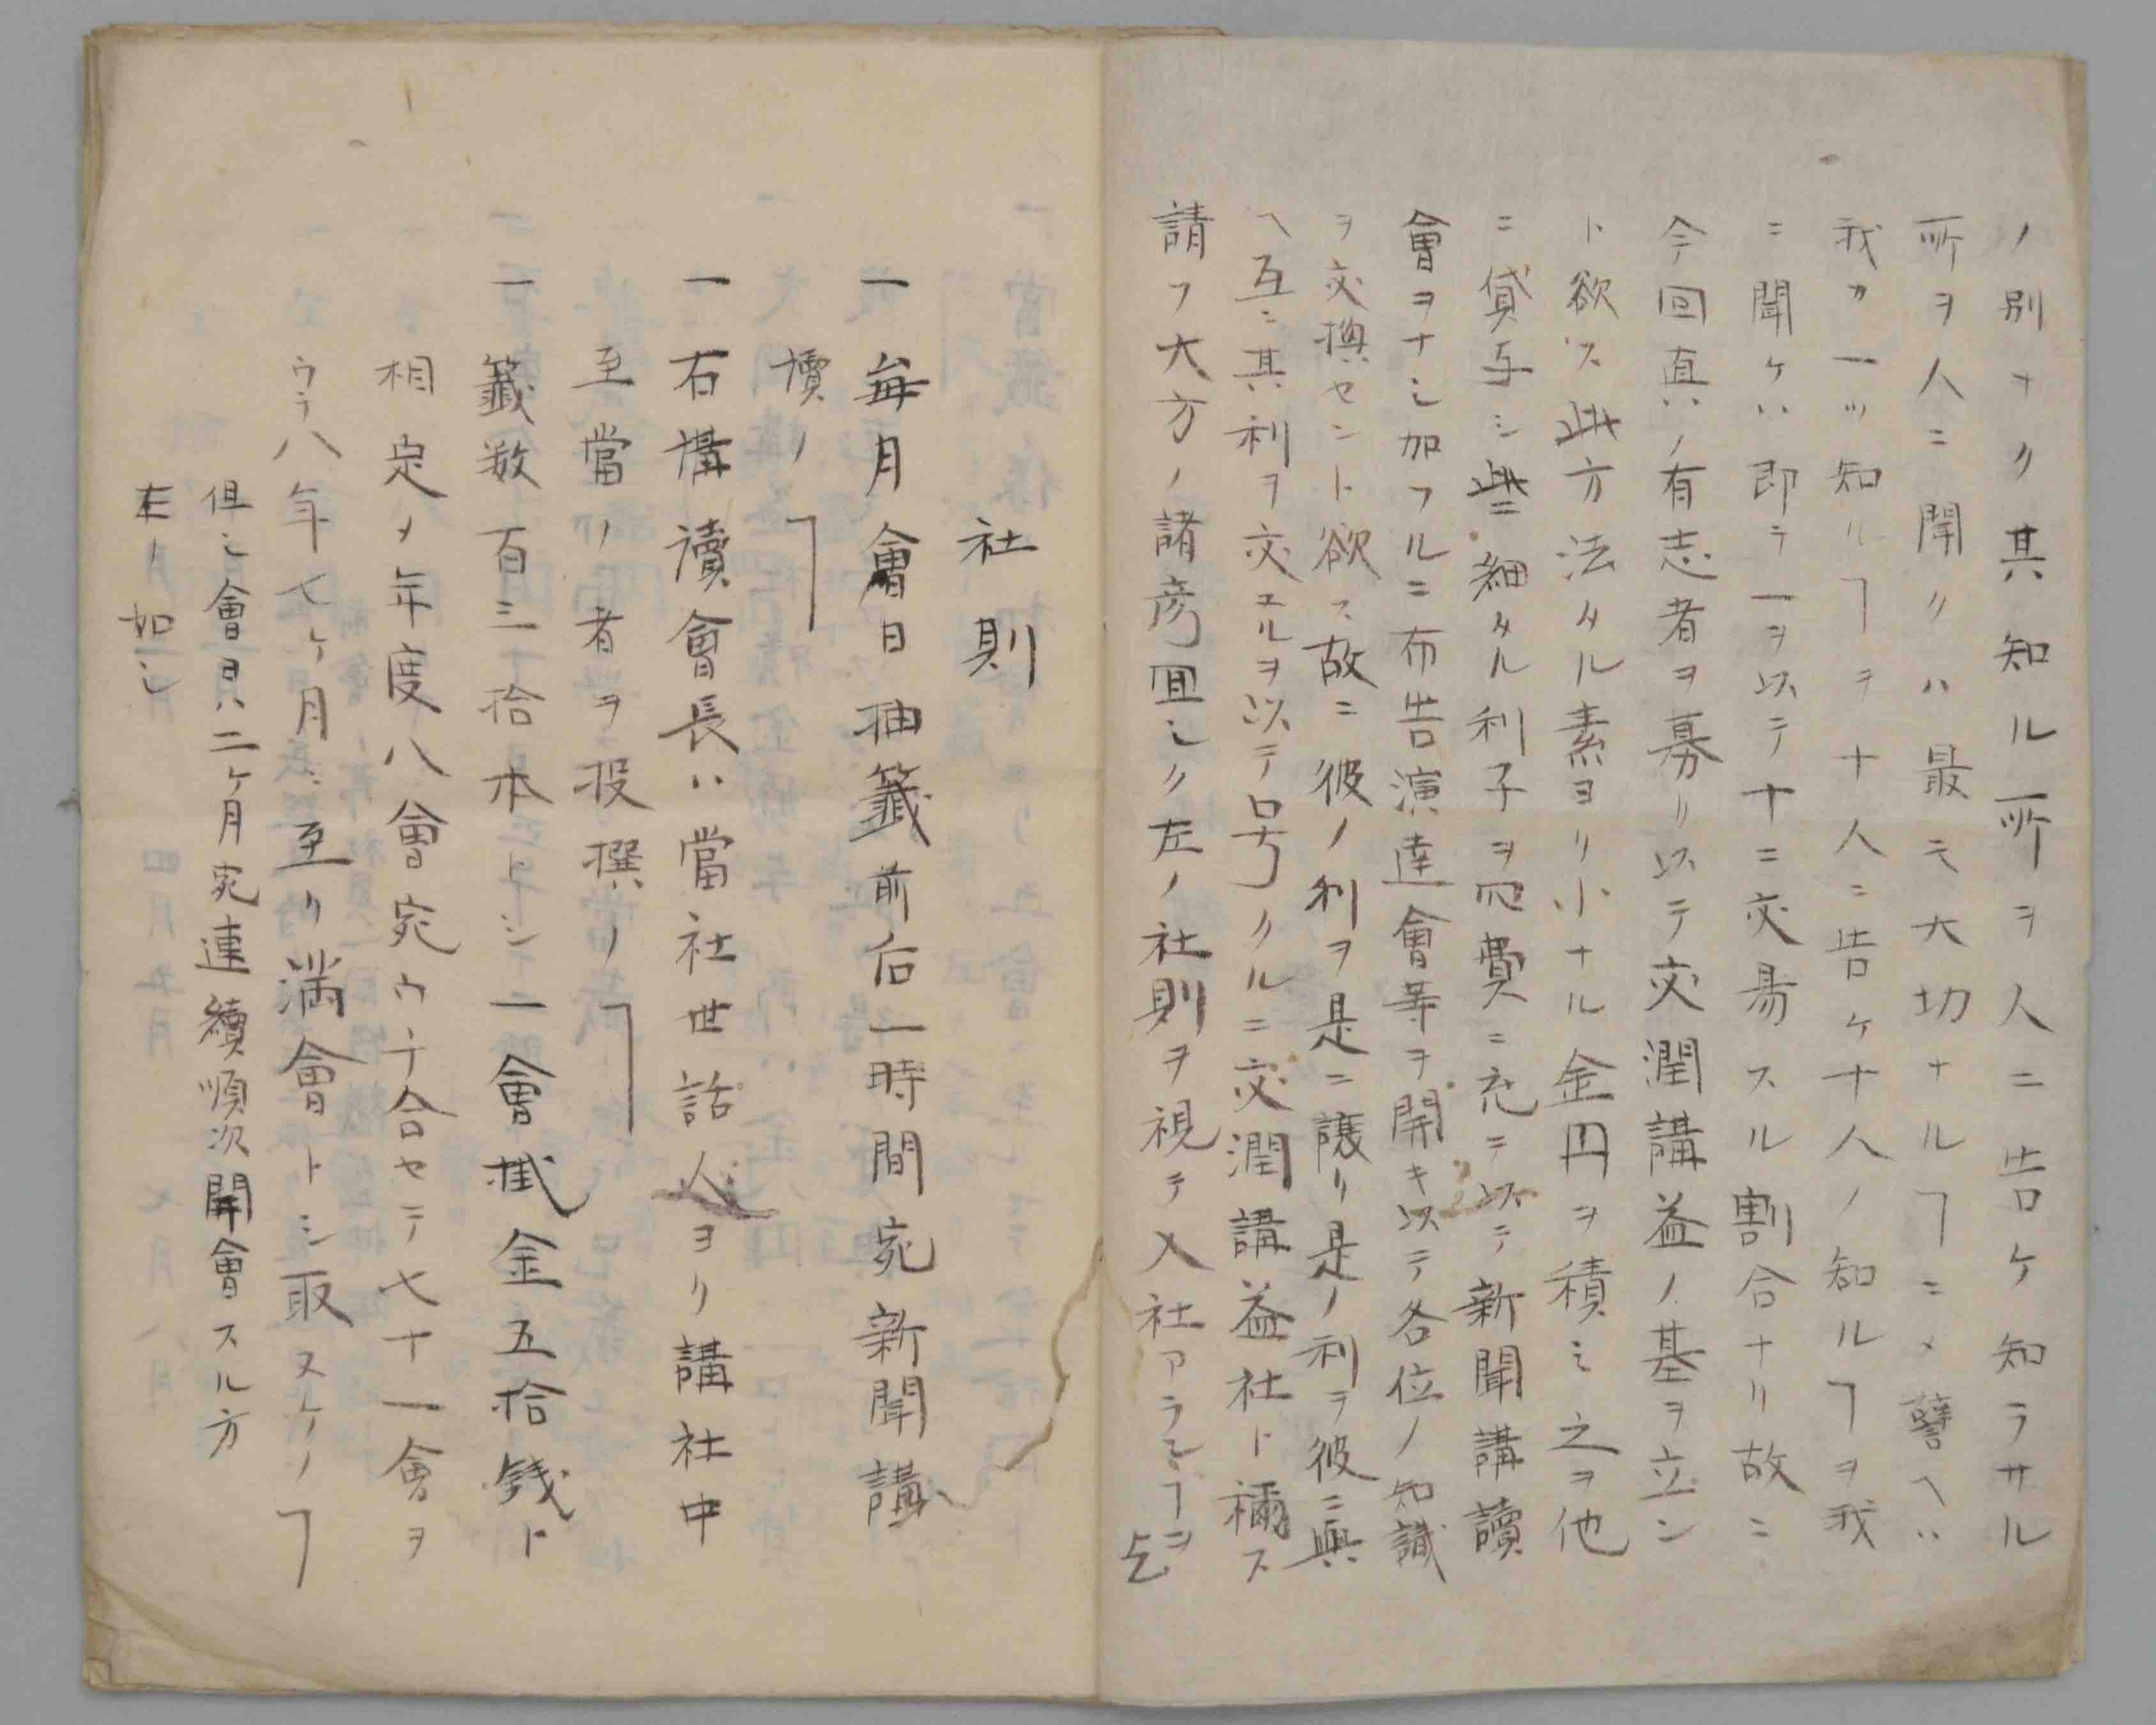 ノ別ナク其知ル所ヲ人ニ告ケ知ラサル
所ヲ人ニ聞クハ最モ大切ナルヿニメ譬ヘハ
我カ一ツ知ルヿヲ十人ニ告ケ十人ノ知ルヿヲ我
ニ聞ケハ即ラ一ヲ以テ十ニ交易スル割合ナリ故ニ
今回真ノ有志者ヲ募リ以テ交潤講益ノ基ヲ立ン
ト欲ス此方法タル素ヨリ小ナル金円ヲ積ミ之ヲ他
ニ貸与シ些細タル利子ヲ費ニ充テ以テ新聞講讀
會ヲナシ加フルニ布告演達會等ヲ開キ以テ各位ノ知識
ヲ交換セント欲ス故ニ彼ノ利ヲ是ニ譲リ是ノ利ヲ彼ニ與
ヘ互ニ其利ヲ交ユルヲ以テ号クルニ交潤講益社ト稱ス
請フ大方ノ諸彦冝シク左ノ社則ヲ視テ入社アランヿヲ乞
社則
一毎月會日抽籤前后一時間宛新聞講
讀ノヿ
一右講讀會長ハ當社世話人ヨリ講社中
至當ノ者ヲ投撰ノヿ
一籤数百三十拾本トシ一會掛金五拾銭ト
相定メ年度八會宛ウチ合セテ七十一會ヲ
ウテ八年七ヶ月ニ至リ満會トシ取ヌケノヿ
但シ會日ハ二ヶ月宛連續順次開會スル方
末ノ如シ